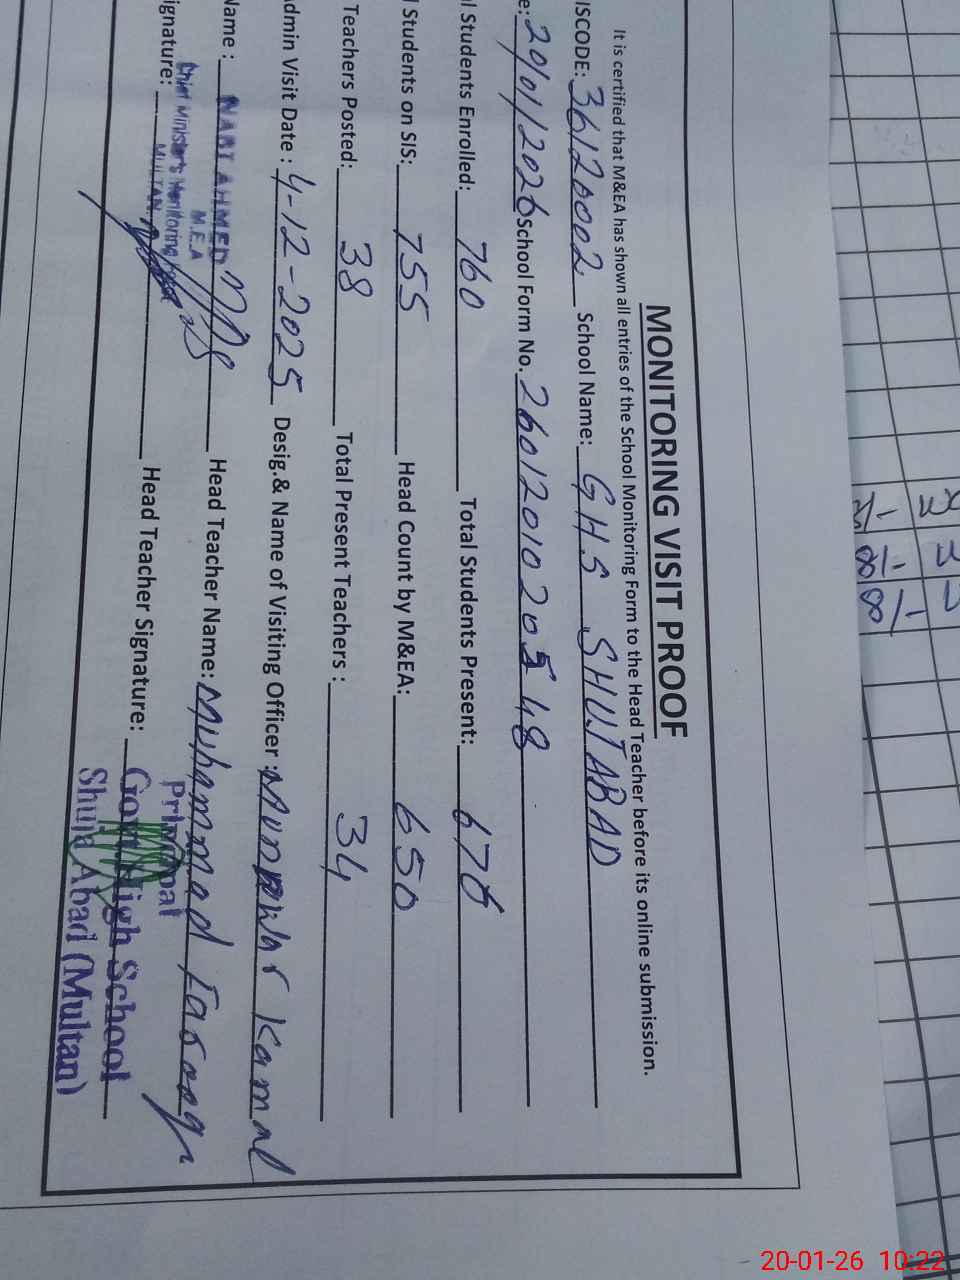 MONITORING VISIT PROOF
It is certified that M&EA has shown all entries of the School Monitoring Form to the Head Teacher before its online submission.
ISCODE: 36120002 School Name: GHS SHUJABAD
e: 20/01/2026 School Form No. 26012010205 48
l Students Enrolled: 760 Total Students Present: 676
l Students on SIS: 755 Head Count by M&EA: 650
Teachers Posted: 38 Total Present Teachers : 34
dmin Visit Date : 4-12-2025 Desig.& Name of Visiting Officer : Munawar Kamal
Name : NABI AHMED Head Teacher Name: Muhammad Farooq
M.E.A
Chief Minister's Monitoring
MULTAN
ignature: Head Teacher Signature:
Principal
Govt. High School
Shuja Abad (Multan)
20-01-26 10:22